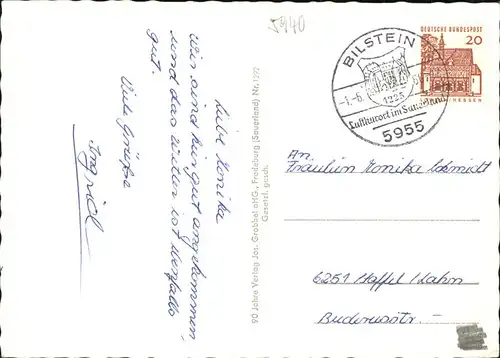 5940
Liebe Monika
Wir sind hier gut angekommen
und das Wetter ist ebenfalls
gut.
Viele Grüße
Ingrid
90 Jahre Verlag Jos. Grobbel oHG., Fredeburg (Sauerland) Nr. 1292
Gesetzl. gesch.
BILSTEIN
-1.-6.
1225
Luftkurort im Sauerland
5955
DEUTSCHE BUNDESPOST
20
HESSEN
An
Fräulein Monika Schmidt
6251 Haffel/Lahn